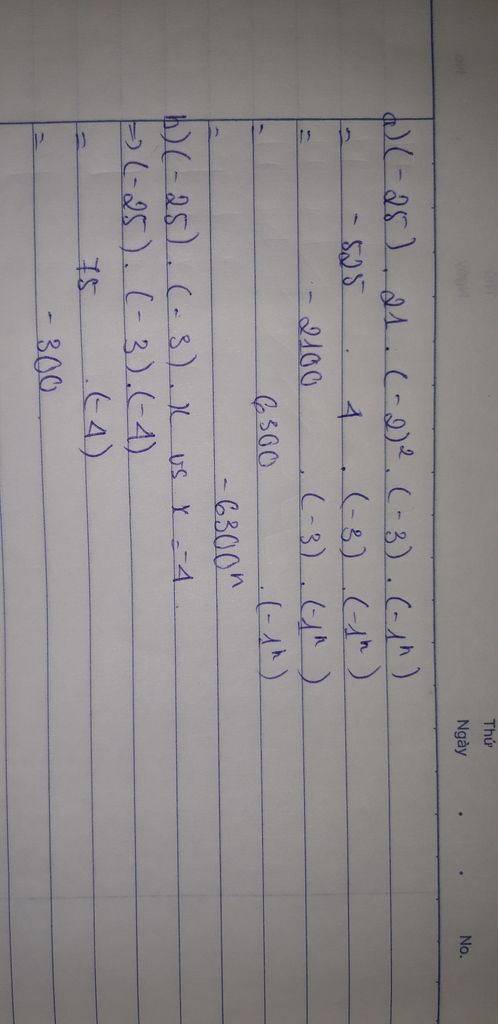 Thứ
Ngày . . No.
a) (-25) . 21 . (-2)² . (-3) . (-1ⁿ)
= -525 . 4 . (-3) . (-1ⁿ)
= -2100 . (-3) . (-1ⁿ)
= 6300 . (-1ⁿ)
= -6300ⁿ
b) (-25) . (-3) . x vs x = -4
=> (-25) . (-3) . (-4)
= 75 . (-4)
= -300